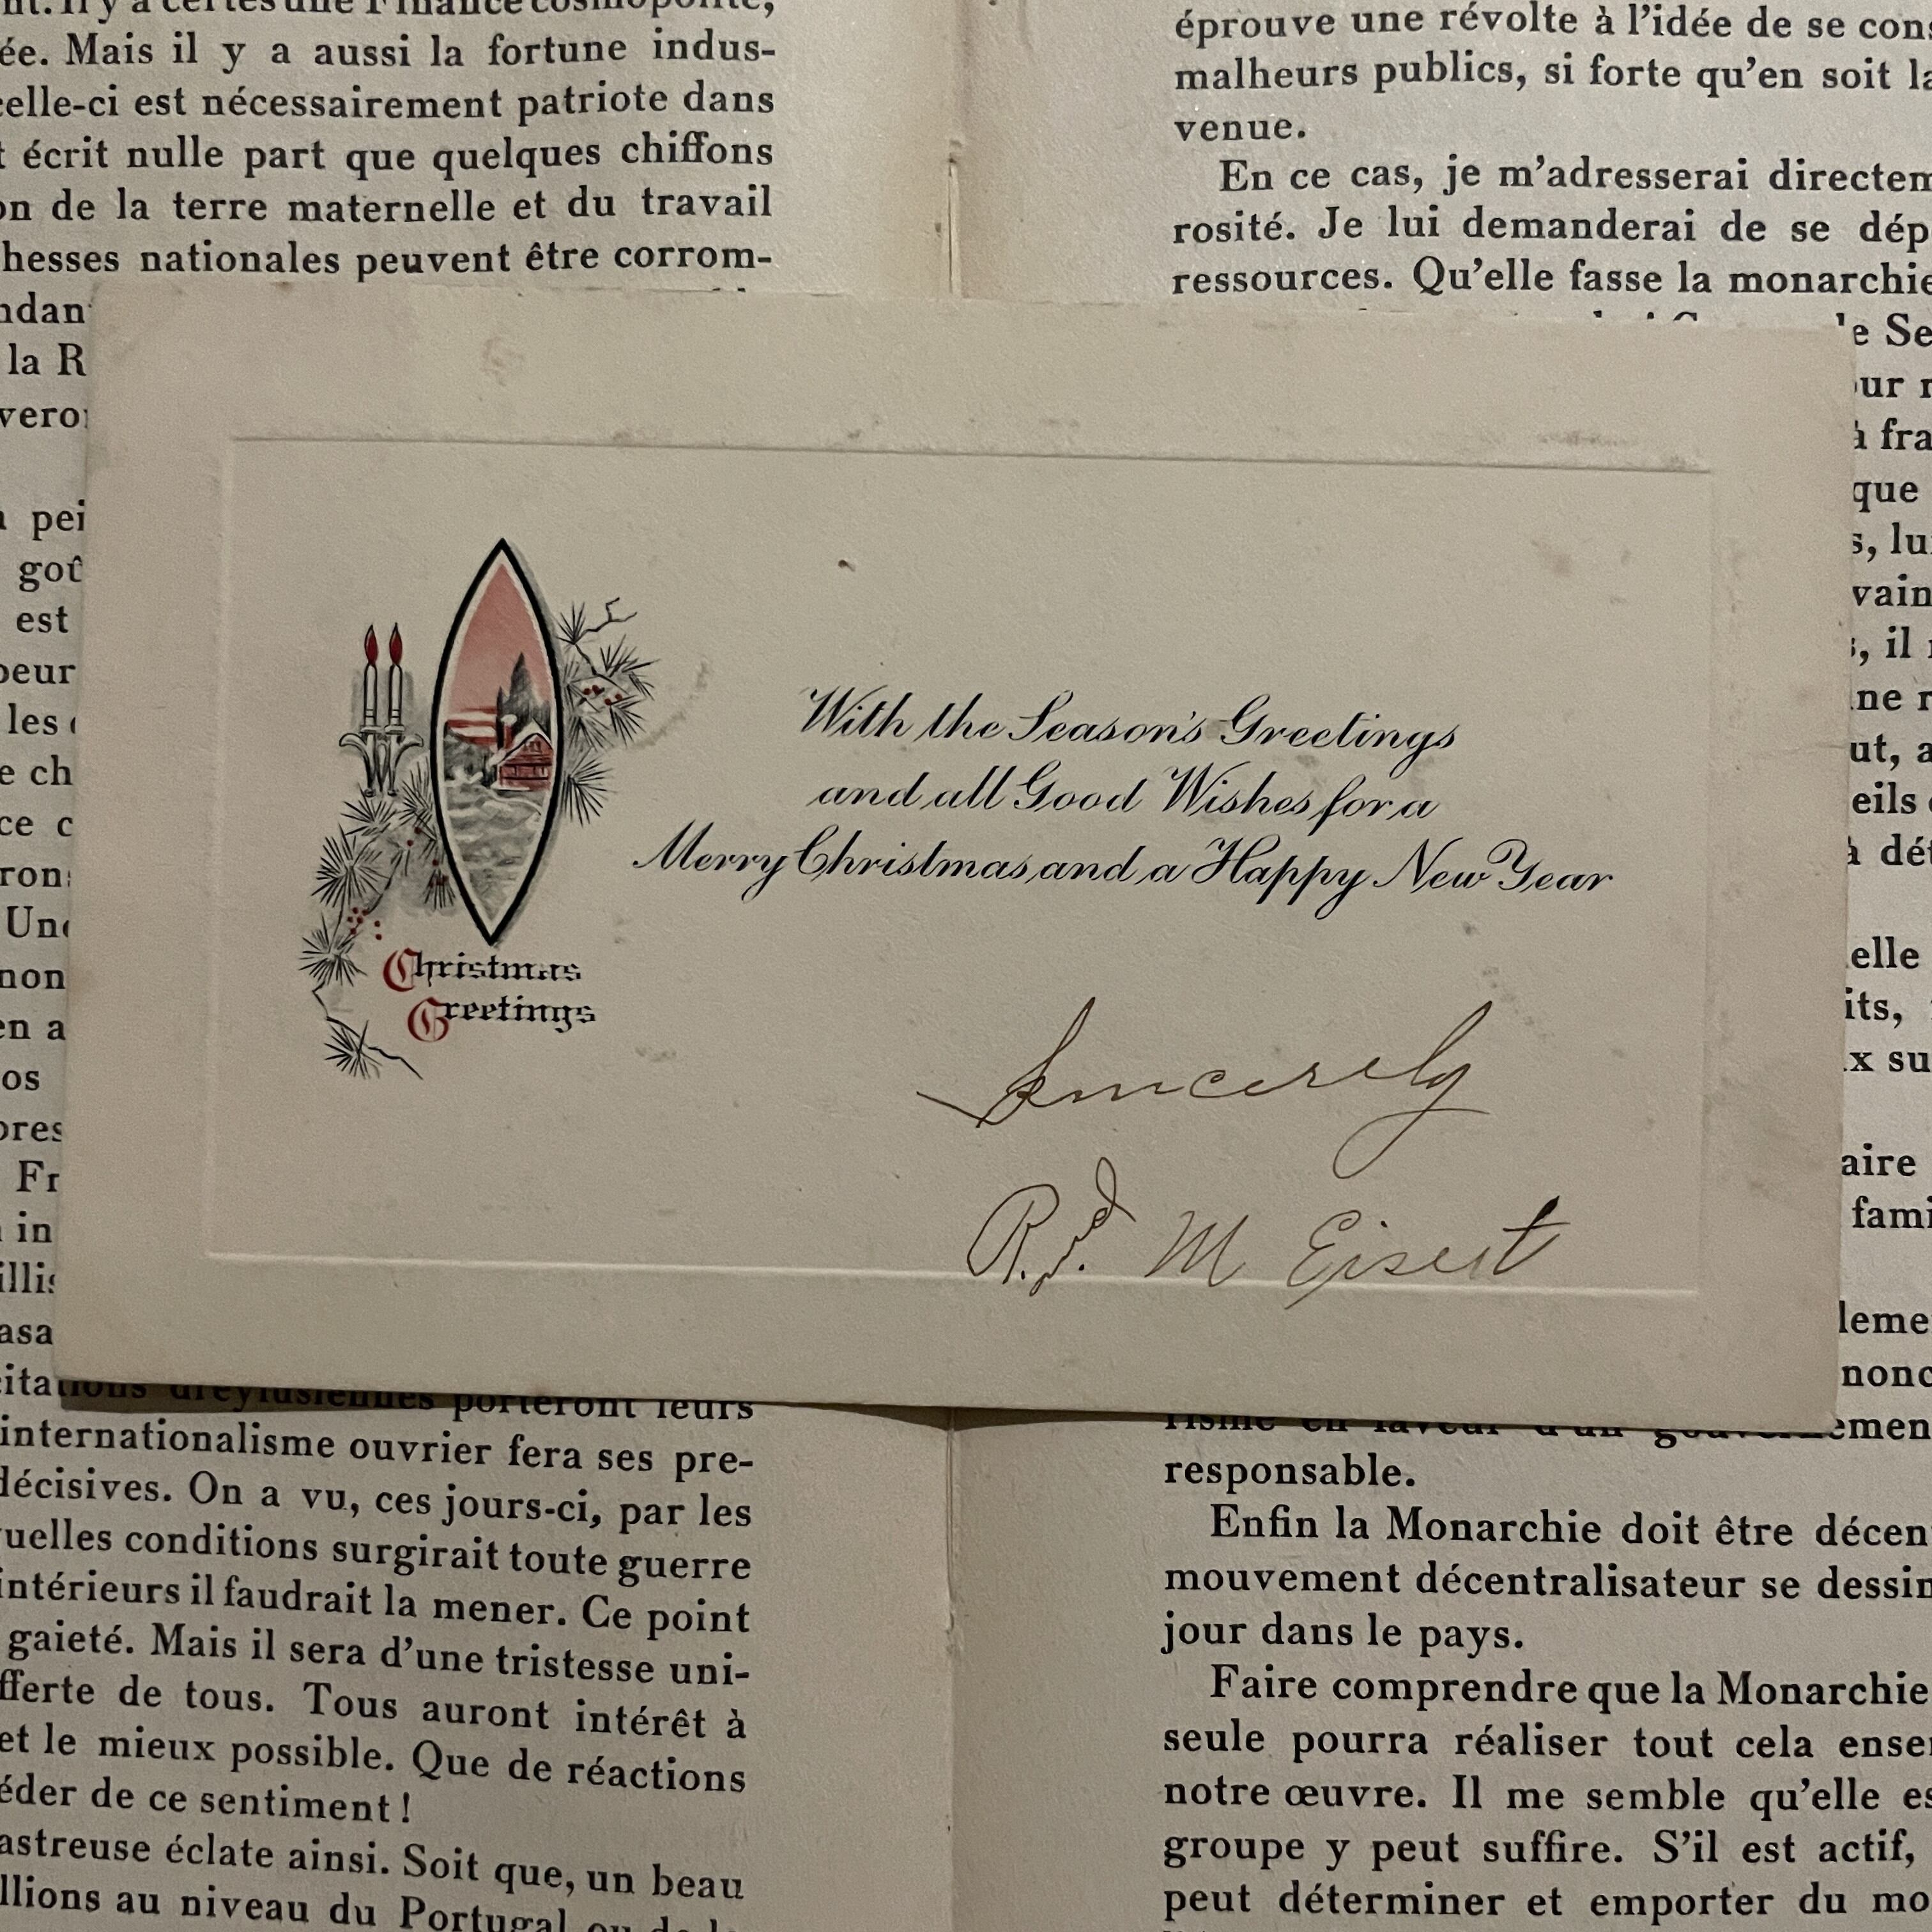 nt. Il y a certes une Finance cosmopolite,
ée. Mais il y a aussi la fortune indus-
celle-ci est nécessairement patriote dans
t écrit nulle part que quelques chiffons
on de la terre maternelle et du travail
hesses nationales peuvent être corrom-
ndan
la R
vero
pei
goû
est
peur
les
e ch
ce c
ron
Un
non
en a
os
pres
Fr
in
illi
asa
citations dreyfusiennes porteront leurs
internationalisme ouvrier fera ses pre-
décisives. On a vu, ces jours-ci, par les
quelles conditions surgirait toute guerre
intérieurs il faudrait la mener. Ce point
gaieté. Mais il sera d'une tristesse uni-
fferte de tous. Tous auront intérêt à
et le mieux possible. Que de réactions
éder de ce sentiment !
astreuse éclate ainsi. Soit que, un beau
llions au niveau du Portugal ou de la
With the Season's Greetings
and all Good Wishes for a
Merry Christmas and a Happy New Year
Christmas
Greetings
Sincerely
M Eisert
éprouve une révolte à l'idée de se cons
malheurs publics, si forte qu'en soit la
venue.
En ce cas, je m'adresserai directem
rosité. Je lui demanderai de se dép
ressources. Qu'elle fasse la monarchie
e Se
our
à fra
que
s, lu
vain
s, il
ne r
ut, a
eils
à dé
elle
its,
x su
aire
fami
leme
nonc
risme en faveur d'un gouvernemen
responsable.
Enfin la Monarchie doit être décen
mouvement décentralisateur se dessin
jour dans le pays.
Faire comprendre que la Monarchie
seule pourra réaliser tout cela ense
notre œuvre. Il me semble qu'elle es
groupe y peut suffire. S'il est actif,
peut déterminer et emporter du mo